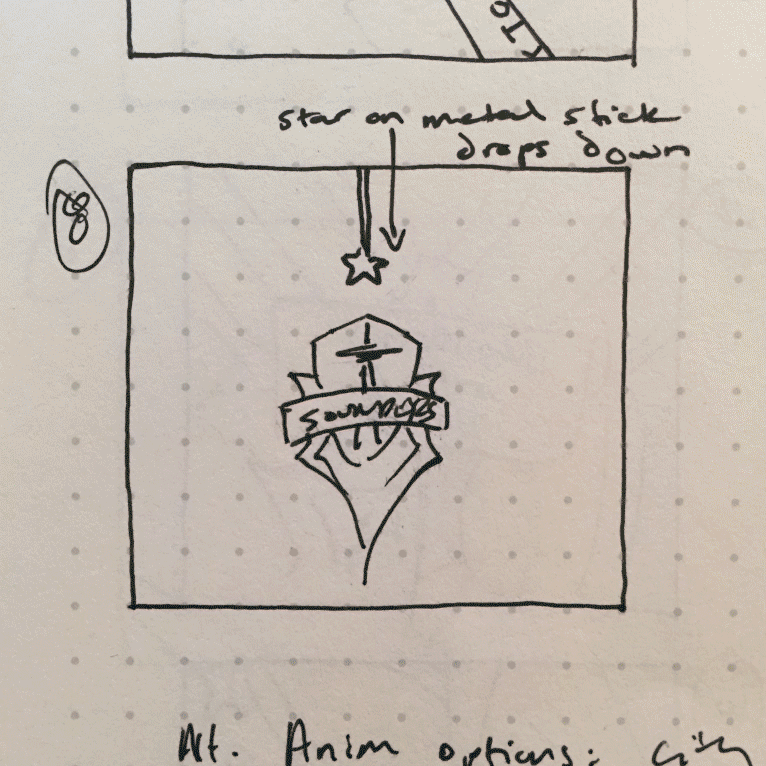 star on metal stick
drops down
18
SOUNDERS
Alt. Anim options: City